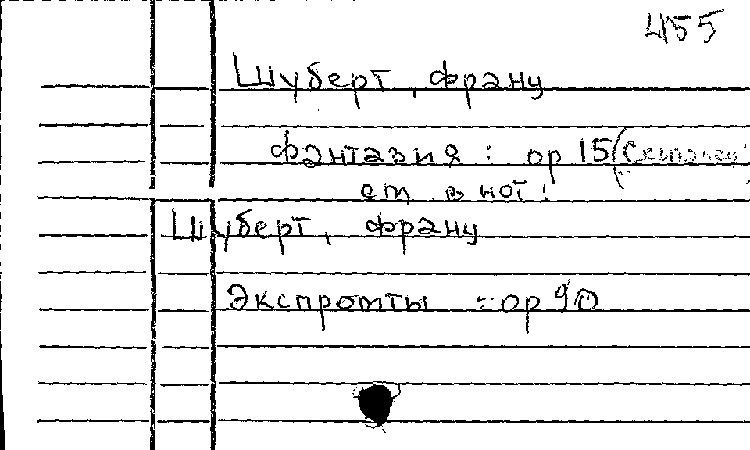 455
Шуберт, франц
фантазия: ор 15
см в нот:
Шуберт, франц
Экспромты - ор 90